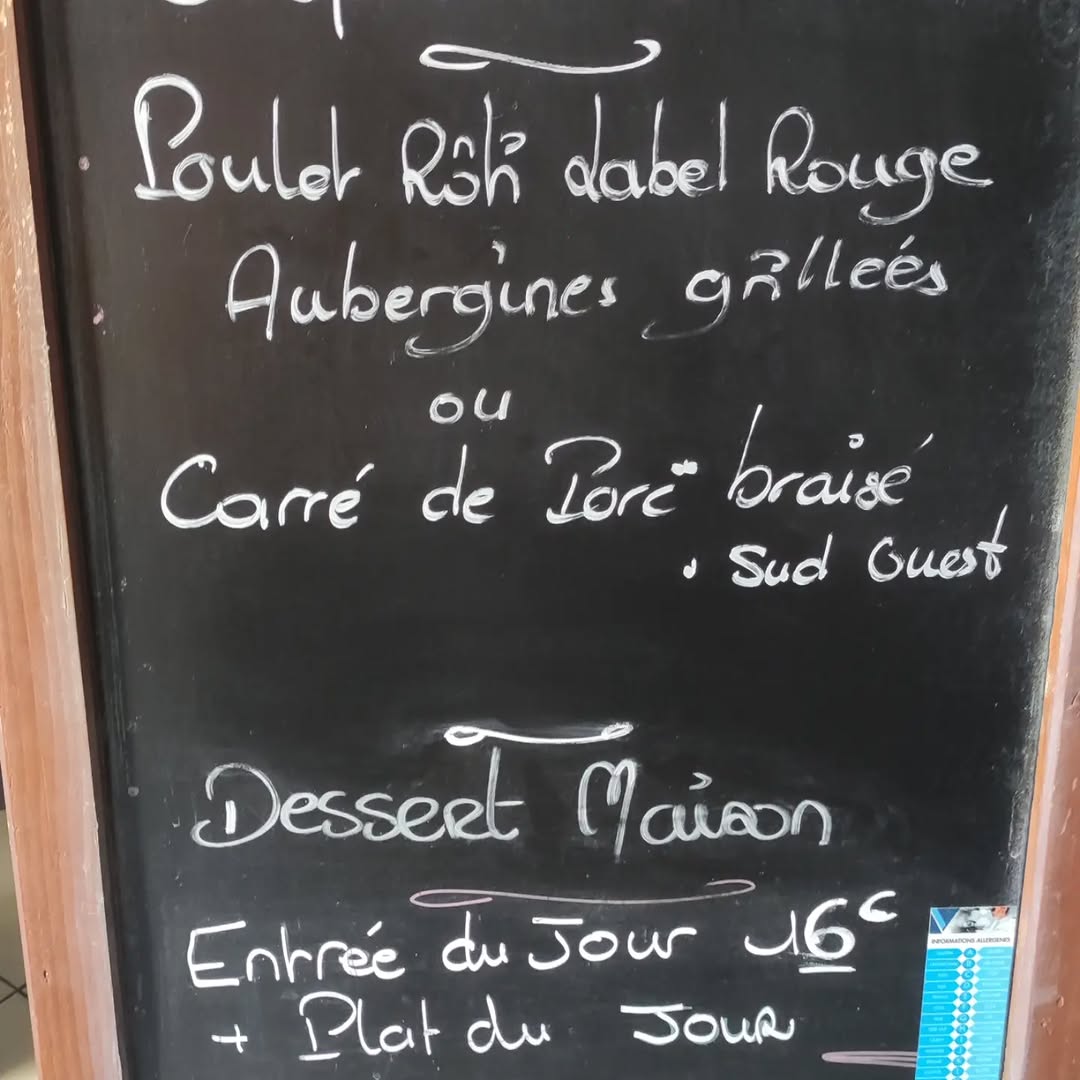 Poulet Rôti Label Rouge
Aubergines grilleés
ou
Carré de Porc braisé
. Sud Ouest
Dessert Maison
Entrée du Jour 16€
+ Plat du Jour
INFORMATIONS ALLERGENES